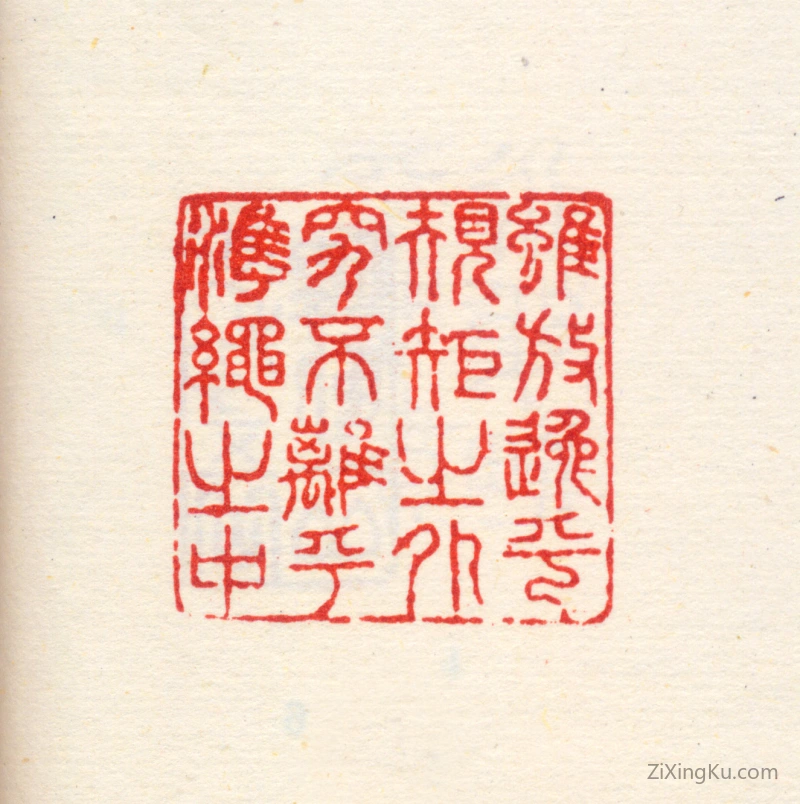 雖放逸乎
規矩之外
究不離乎
準繩之中
ZiXingKu.com